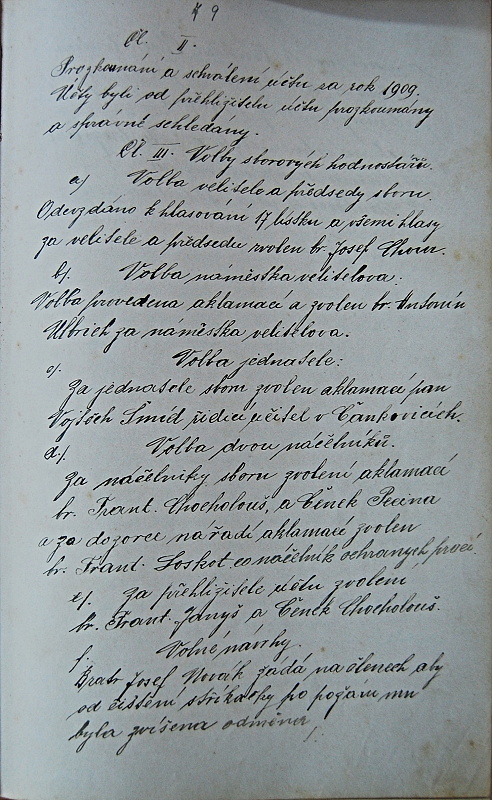 49
Čl. II.
Prozkoumání a schválení účtu za rok 1909.
Účty byli od přehližitelu účtu prozkoumány
a správné schledány.
Čl. III. Volby sborových hodnostářů.
a) Volba velitele a předsedy sboru.
Odevzdáno k hlasování 17 lístku a všemi hlasy
za velitele a předsedu zvolen br. Josef
b). Volba náměstka velitelova.
Volba provedena aklamací a zvolen br. Antonín
Ulbrich za náměstka velitelova.
c). Volba jednatele:
Za jednatele sboru zvolen aklamací pan
Vojtěch Šmíd řídící učitel v Čankovicích.
d.). Volba dvou náčelníků.
Za náčelníky sboru zvoleni aklamací
br. Frant. Chocholouš, a Čeněk Pecina
a za dozorce nářadí aklamací zvolen
br. Frant. Loskot co náčelník ochranných prací.
e). Za přehližitele účtu zvoleni
br. Frant. Janyš a Čeněk Chocholouš.
f. Volné návrhy.
Bratr Josef Novák žádá na členech aby
od čištění stříkačky po požáru mu
byla zvíšena odměna